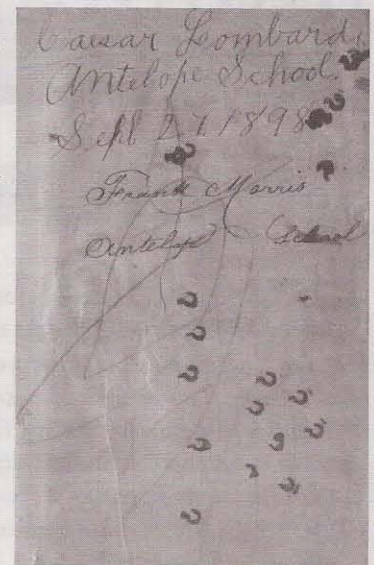 Caesar Lombardi
Antelope School.
Sept 27, 1898
Frank Morris
Antelope School